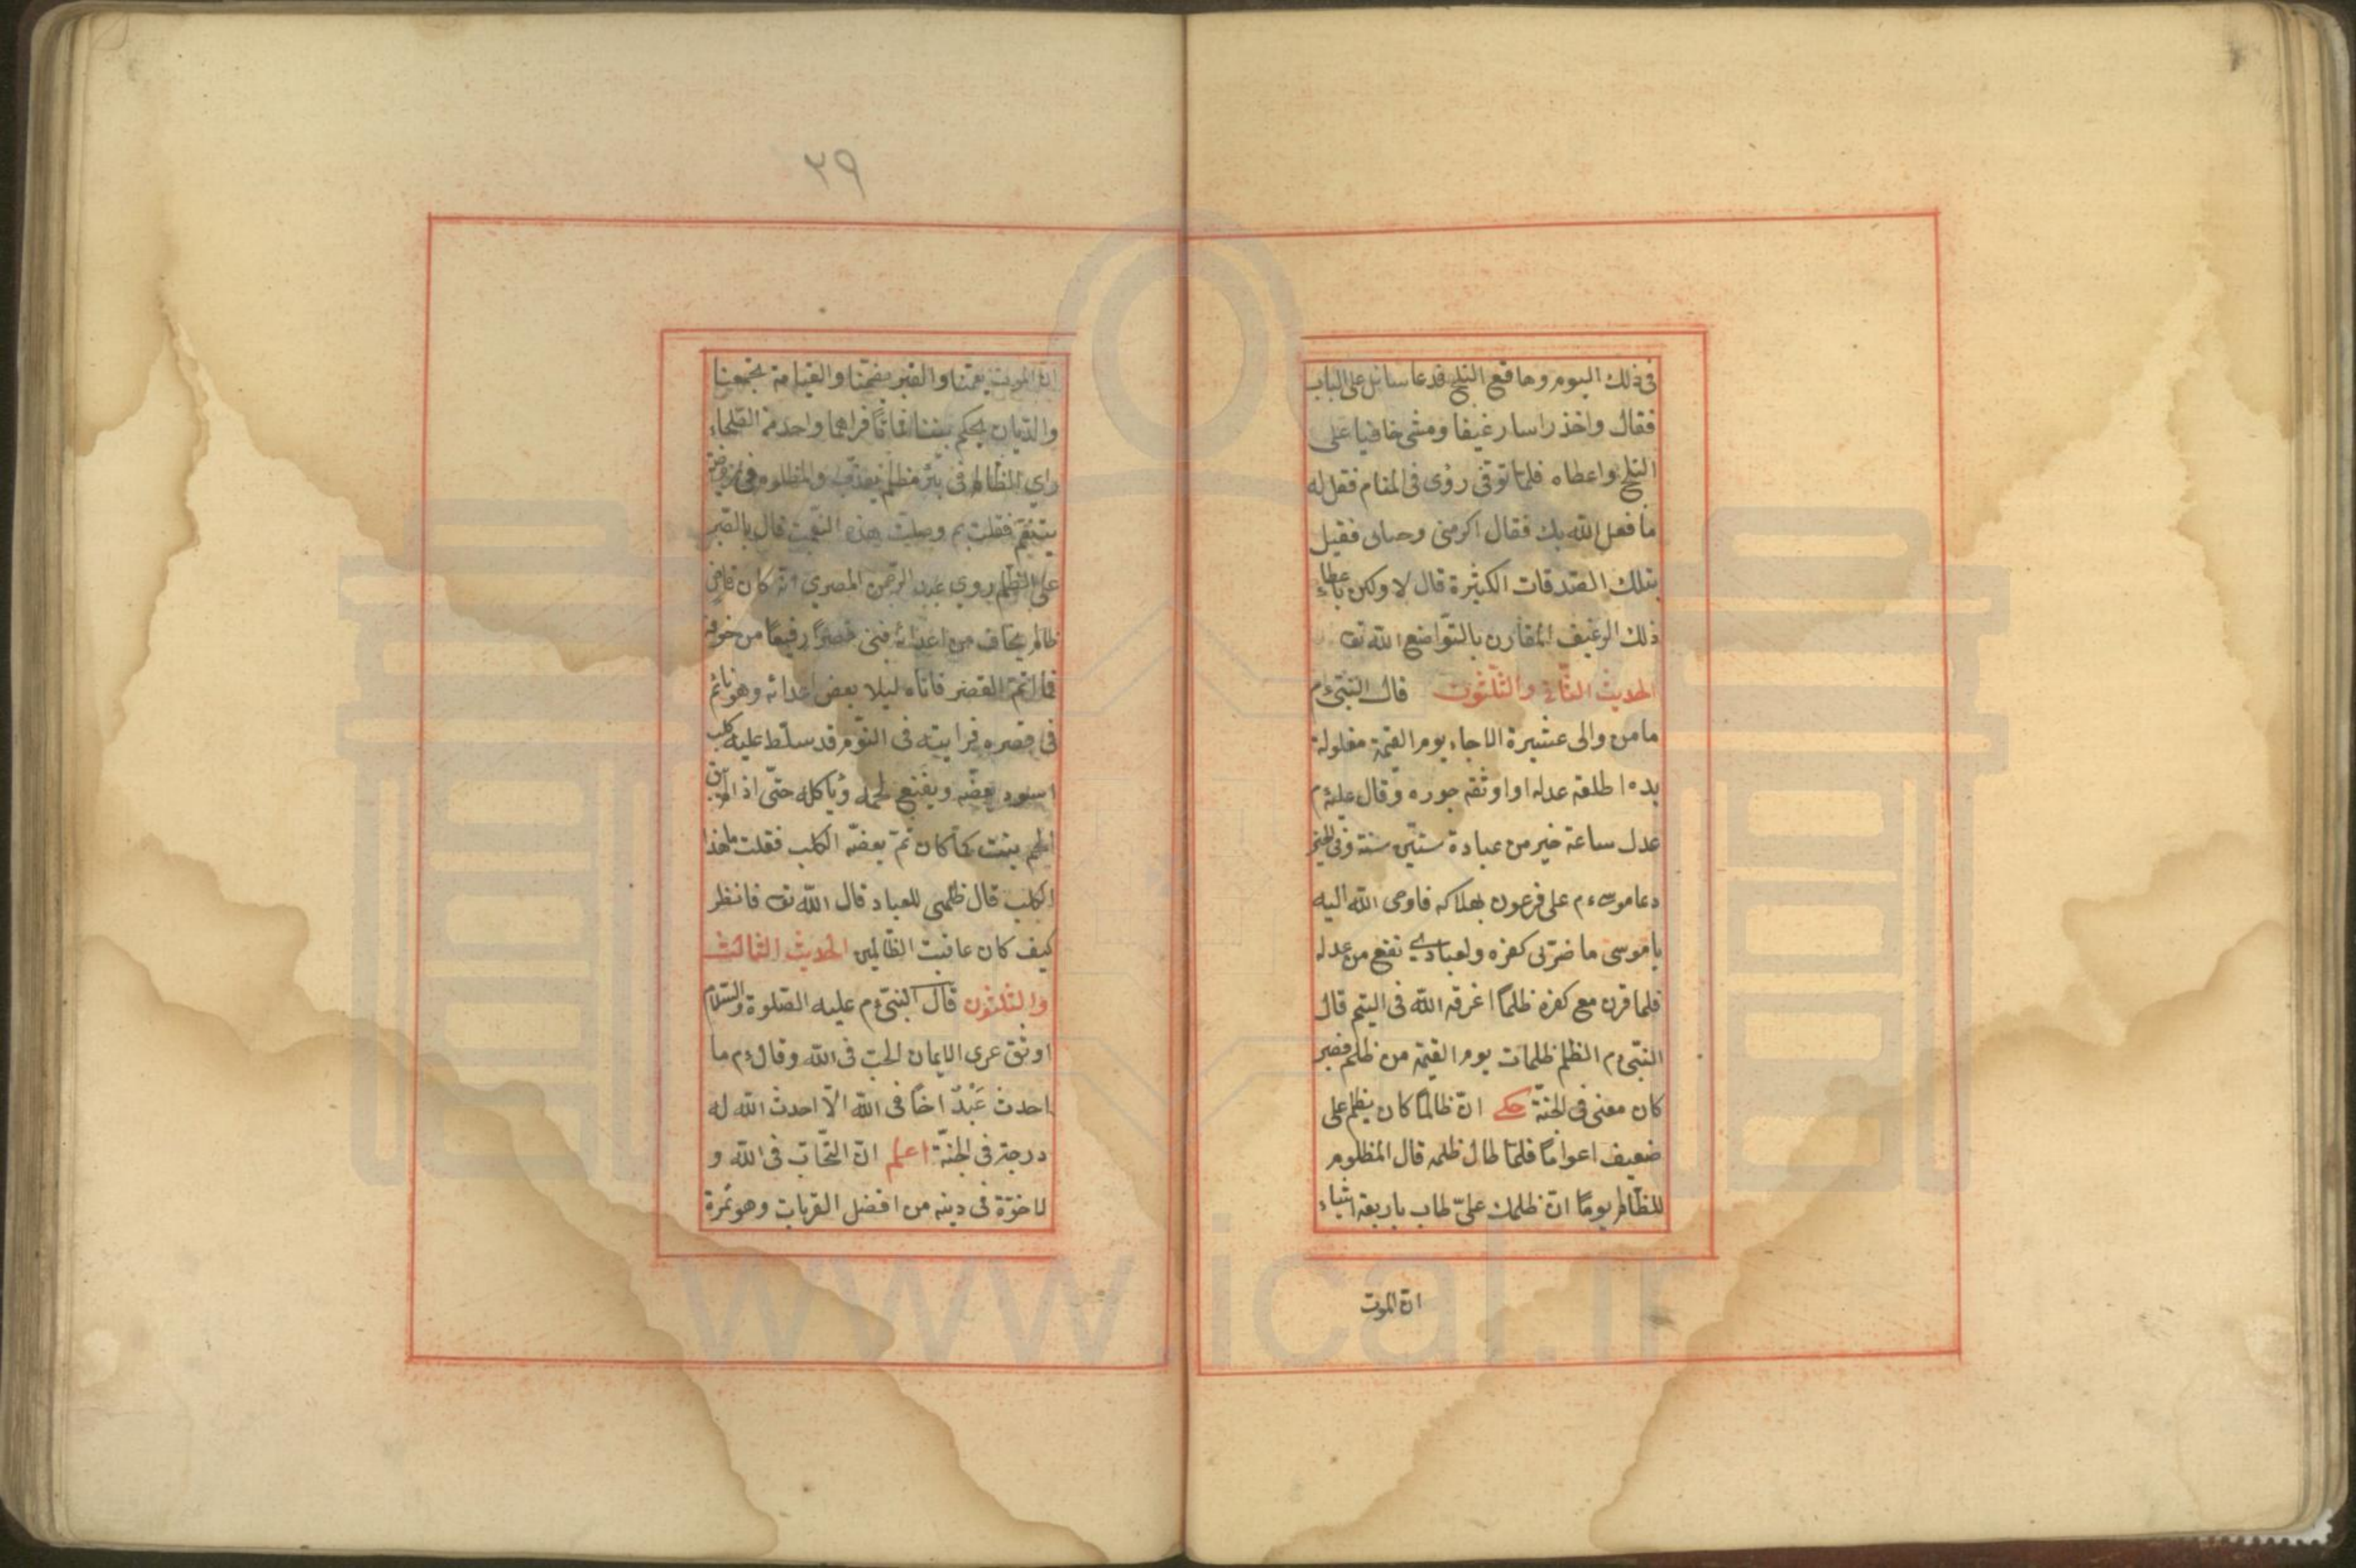 فى ذلك اليوم وما قع الثلج فدعا سائل على الباب
فقال واخذ راسا رغيفا ومشى خافيا على
الثلج واعطاه فلما توفى رؤى فى المنام فقل له
ما فعل الله بك فقال اكرمنى وحبانى فقيل
بتلك الصدقات الكثيرة قال لا ولكن باعطاء
ذلك الرغيف المقارن بالتواضع الله تع
الحديث الثانى والثلثون قال النبى ءم
ما من والى عشيرة الا جاء يوم القيمة مغلولة
يده اطلقه عدله او اوثقه جوره وقال عليه م
عدل ساعة خير من عبادة ستين سنة وفى الخبر
دعا موسى ءم على فرعون بهلاكه فاوحى الله اليه
يا موسى ما ضرنى كفره ولعبادى نفع من عدله
فلما قرن مع كفره ظلما اغرقه الله فى اليم قال
النبى ءم الظلم ظلمات يوم القيمة من ظلم فصبر
كان معنى فى الجنة حكى ان ظالما كان يظلم على
ضعيف اعواما فلما طال ظلمه قال المظلوم
للظالم يوما ان ظلمك علىّ طاب باربعة اشياء
ان الموت
٣٩
ان الموت يعمنا والقبر يضمنا والقيامة يجمعنا
والديان يحكم بيننا فماتا فراهما واحد من الصلحاء
راى الظالم فى بئر مظلم يعذب والمظلوم فى
يتنعم فقلت بم وصلت هذه النعمت قال بالصبر
على الظلم روى عبد الرحمن المصرى انه كان قاضى
ظالم يخاف من اعدائه فبنى قصرا رفيعا من خوفه
فما اتم القصر فاتاه ليلا بعض اعدائه وهو نائم
فى قصره فرايته فى النوم قد سلط عليه كلب
اسود يعضه ويقنع لحمه وياكله حتى اذا لم يبق
لحم ينبت كما كان ثم يعضه الكلب فقلت ما هذا
الكلب قال ظلمى للعباد قال الله تع فانظر
كيف كان عاقبت الظالمين الحديث الثالث
والثلثون قال النبى ءم عليه الصلوة والسلام
اوثق عرى الايمان الحب فى الله وقال ءم ما
احدث عَبْدٌ اخًا فى الله الا احدث الله له
درجة فى الجنة اعلم ان التحاب فى الله و
لاخوة فى دينه من افضل القربات وهو ثمرة